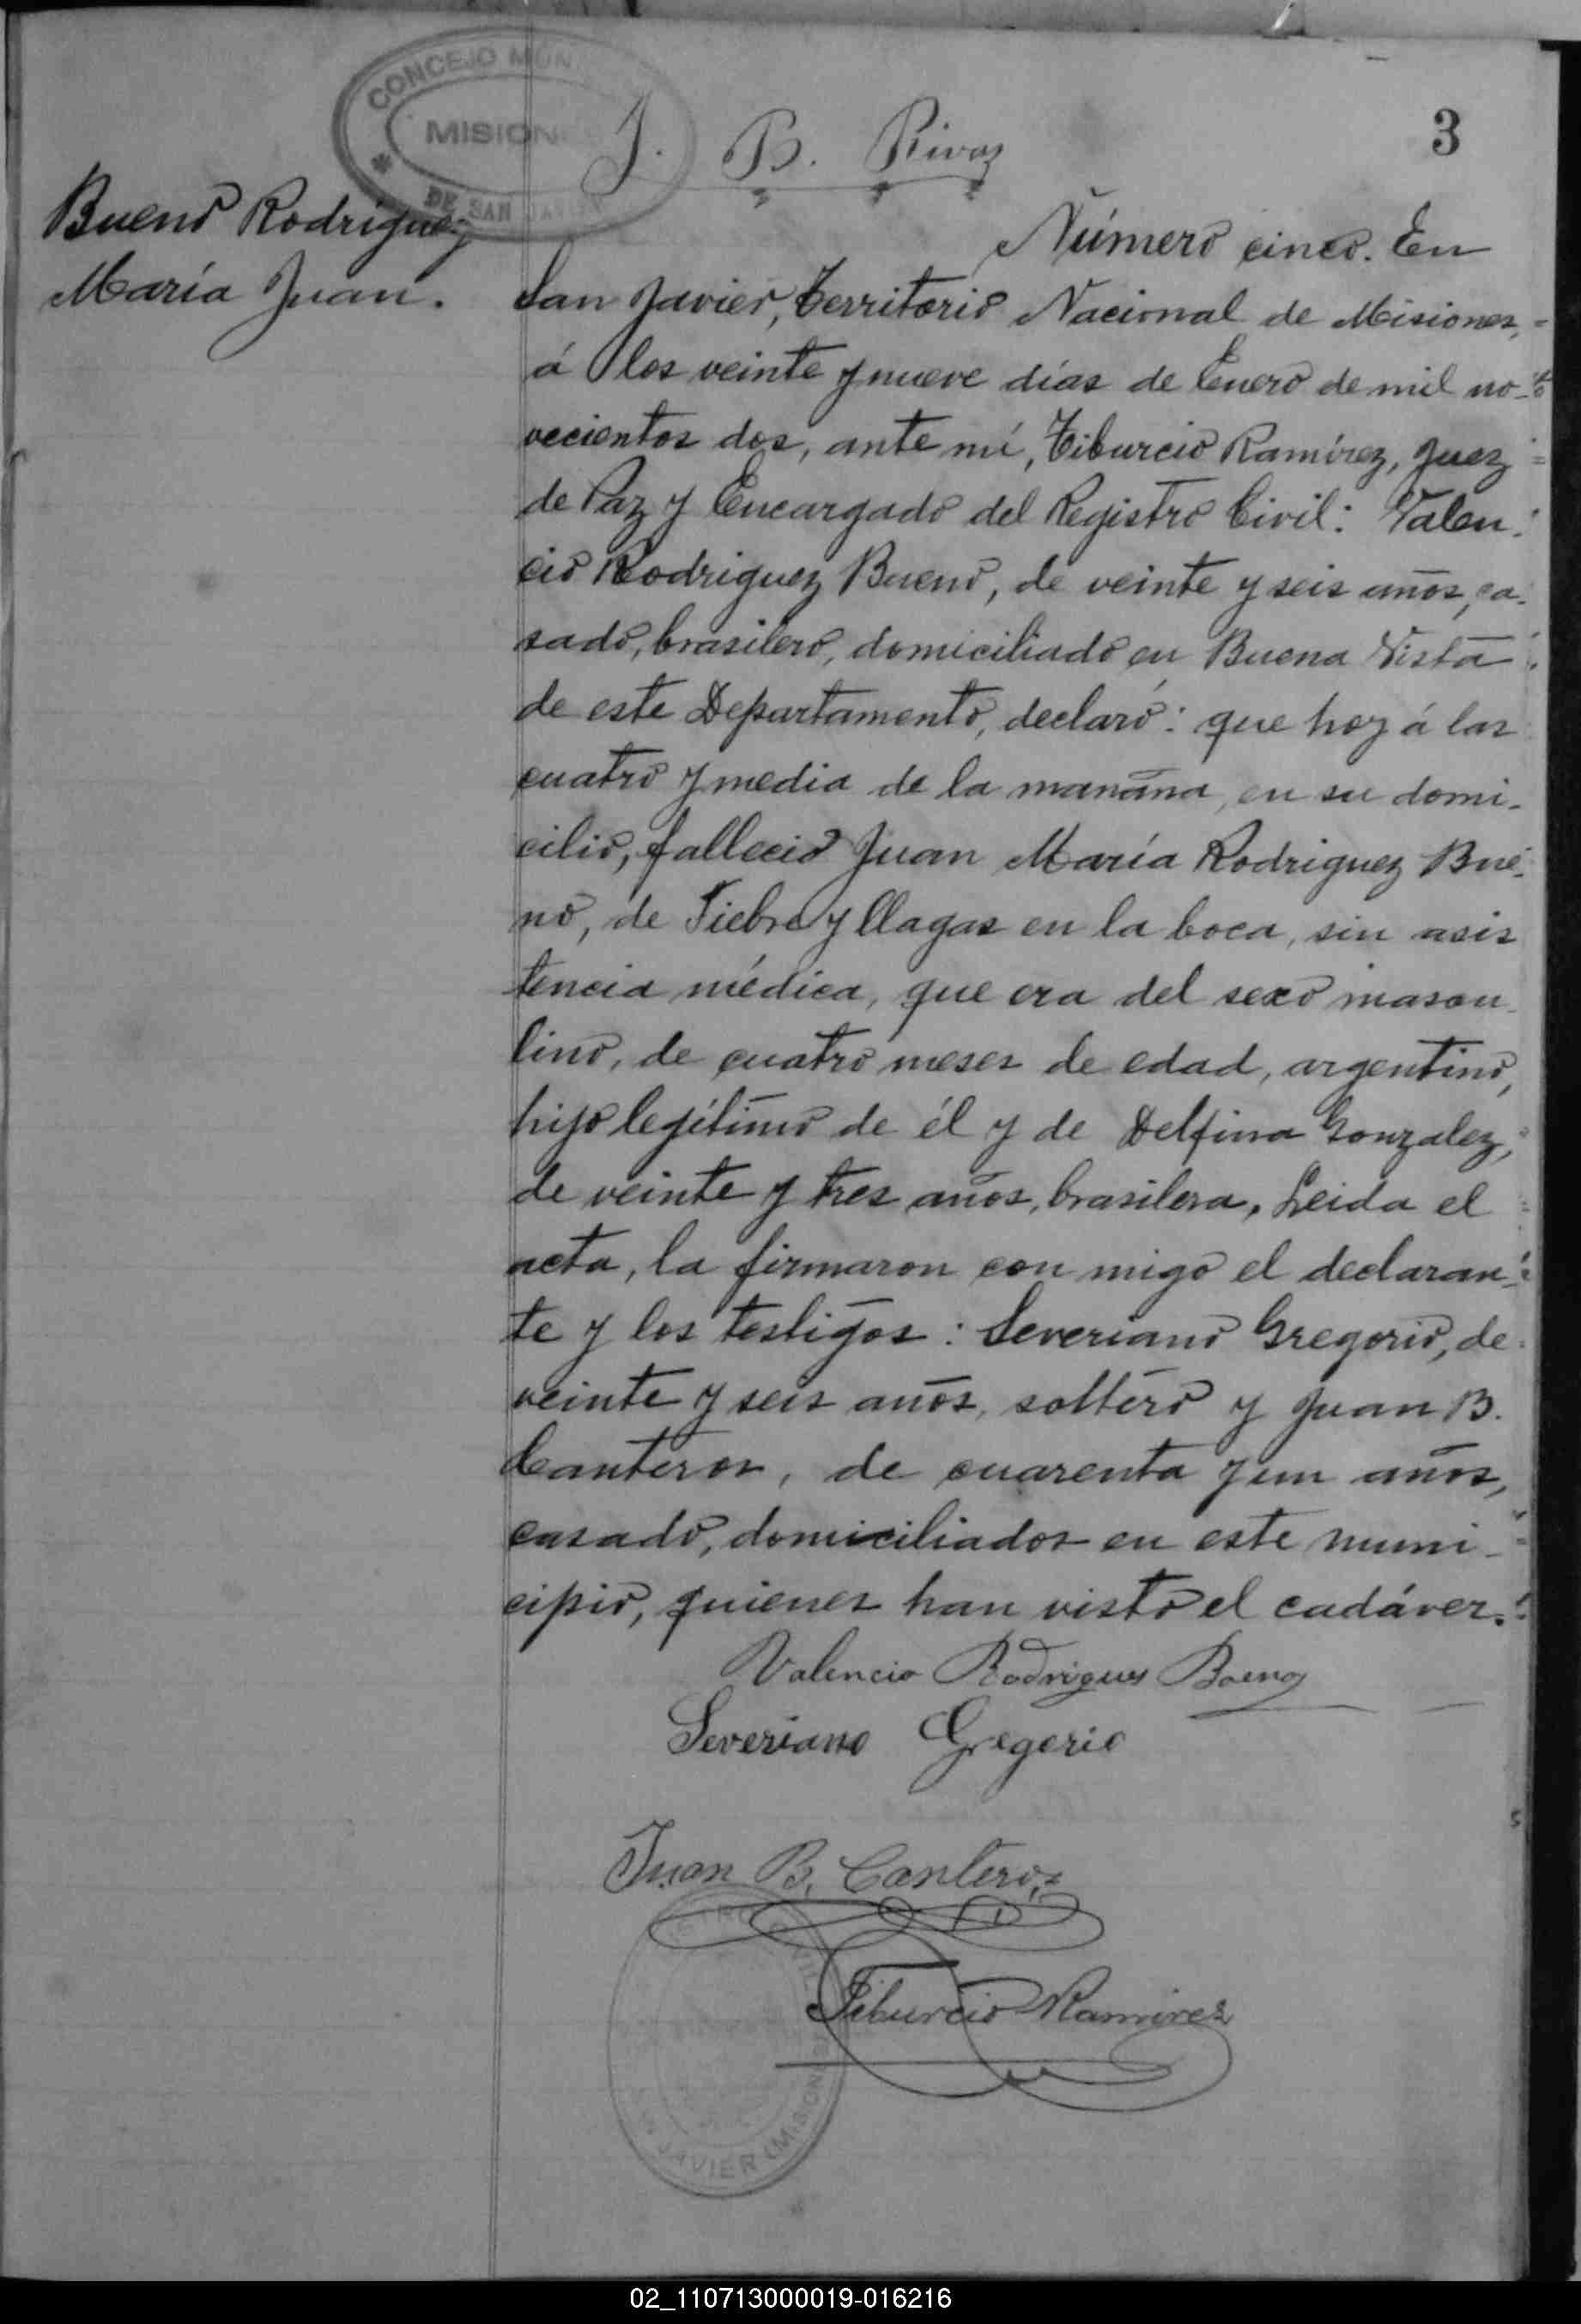 CONCEJO MUN
MISION
DE SAN JAVIER
J. B. Rivas
3
Bueno Rodríguez
María Juan.
Número cinco. En
San Javier, Territorio Nacional de Misiones,
á los veinte y nueve días de Enero de mil no-
vecientos dos, ante mí, Tiburcio Ramírez, Juez
de Paz y Encargado del Registro Civil: Valen
cio Rodriguez Bueno, de veinte y seis años, ca-
sado, brasilero, domiciliado en Buena Vista
de este Departamento, declaró: que hoy á las
cuatro y media de la mañana, en su domi-
cilio, falleció Juan María Rodriguez Bue-
no, de Fiebre y llagas en la boca, sin asis
tencia médica, que era del sexo mascu
lino, de cuatro meses de edad, argentino,
hijo legítimo de él y de Delfina Gonzalez,
de veinte y tres años, brasilera. Leida el
acta, la firmaron con migo el declaran-
te y los testigos: Severiano Gregorio, de
veinte y seis años, soltero y Juan B.
Canteros, de cuarenta y un años,
casado, domiciliados en este muni-
cipio, quienes han visto el cadáver.
Valencio Rodrigues Boeno
Severiano Gregorio
Juan B. Canteros
Tiburcio Ramirez
JAVIER (MISIONES
02_110713000019-016216